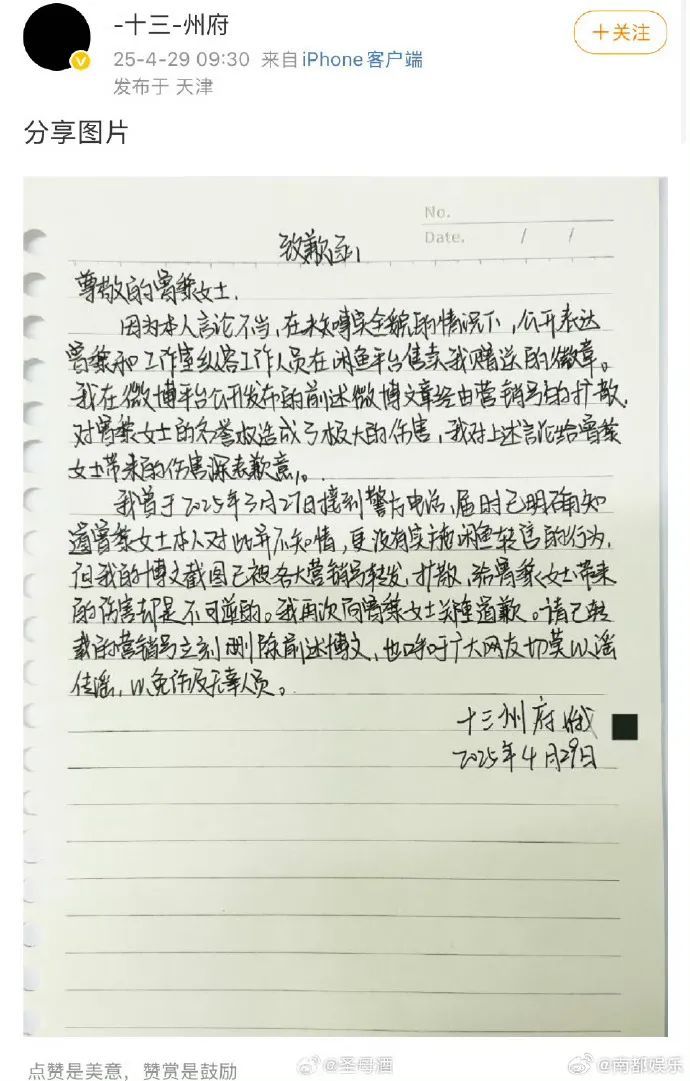 -十三-州府
+关注
25-4-29 09:30 来自 iPhone客户端
发布于 天津
分享图片
No.
Date. / /
致歉函
尊敬的曾黎女士,
因为本人言论不当,在未知事实全貌的情况下,公开表达
曾黎和工作室纵容工作人员在闲鱼平台售卖我赠送的徽章。
我在微博平台公开发布的前述微博文章经由营销号的扩散,
对曾黎女士的名誉权造成了极大的伤害,我对上述言论给曾黎
女士带来的伤害深表歉意。
我曾于2025年3月27日接到警方电话,届时已明确知
道曾黎女士本人对此并不知情,更没有实施闲鱼转售的行为,
但我的博文截图已被各大营销号转发,扩散,给曾黎女士带来
的伤害却是不可逆的。我再次向曾黎女士关键道歉。请已转
载的营销号立刻删除前述博文,也呼吁广大网友切莫以谣
传谣,以免伤及无辜人员。
十三州府
2025年4月29日
点赞是美意,赞赏是鼓励
@圣母酒
@南都娱乐